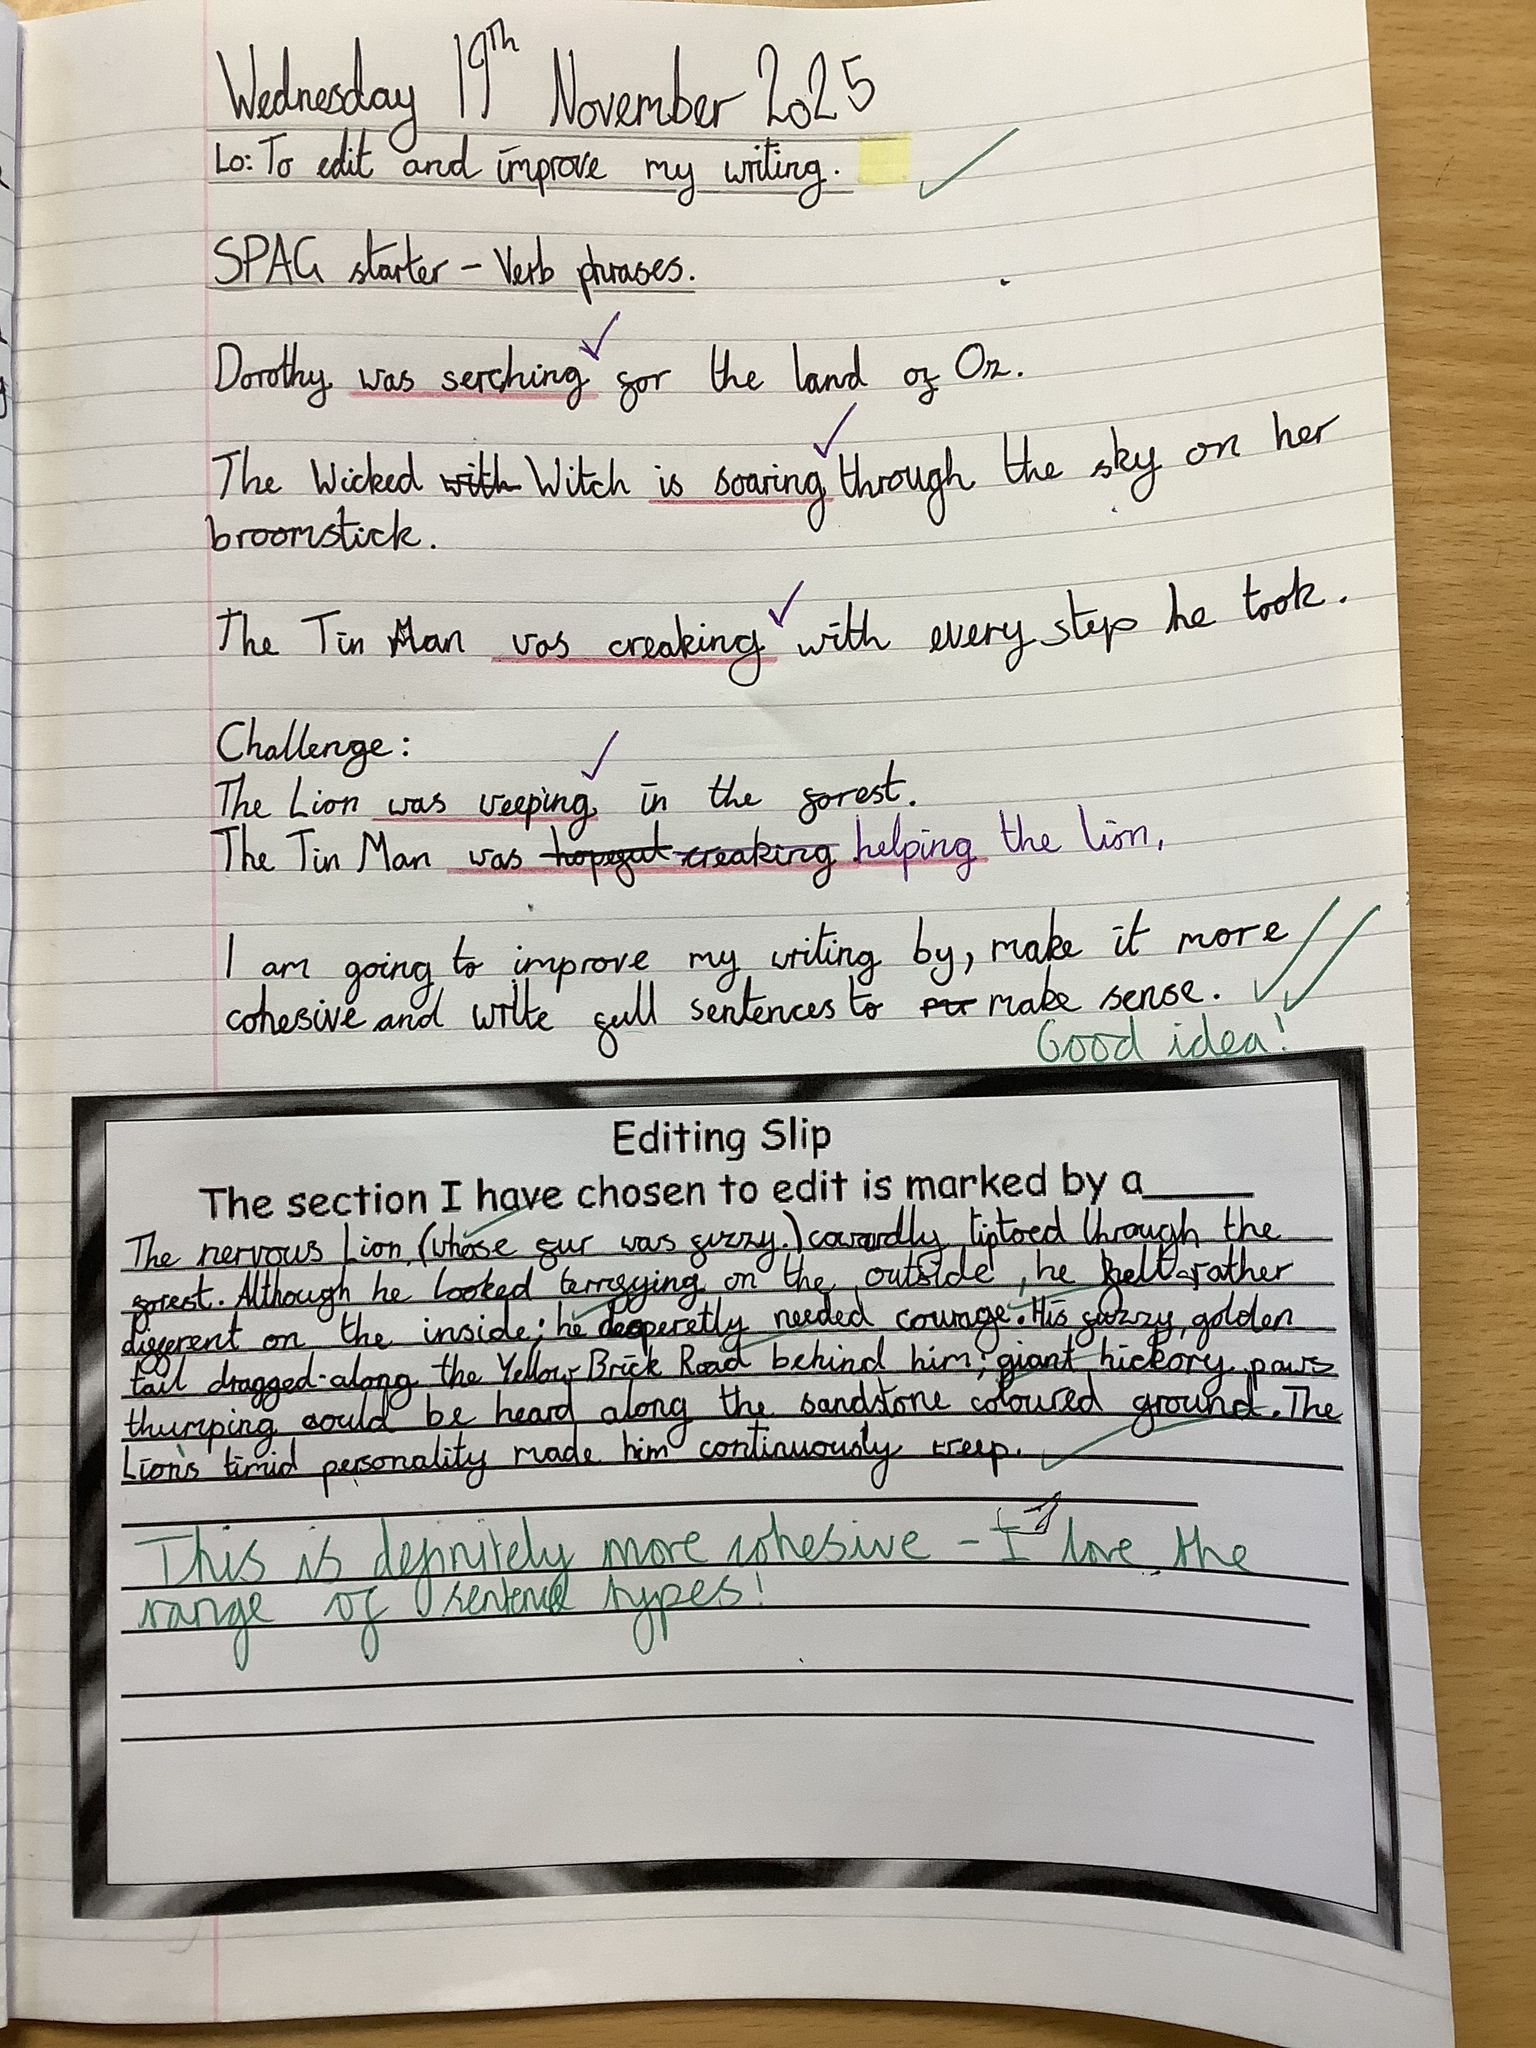 Wednesday 19th November 2025
Lo: To edit and improve my writing.
SPAG starter - Verb phrases.
Dorothy was serching for the land of Oz.
The Wicked with Witch is soaring through the sky on her
broomstick.
The Tin Man was creaking with every step he took.
Challenge:
The Lion was weeping in the forest.
The Tin Man was creaking helping the lion.
I am going to improve my writing by, make it more
cohesive and write full sentences to make sense.
Good idea!
Editing Slip
The section I have chosen to edit is marked by a____
The nervous Lion, (whose fur was fuzzy.) cowardly tiptoed through the
forest. Although he looked terrifying on the outside, he felt rather
different on the inside; he desperetly needed courage. His fuzzy, golden
tail dragged along the Yellow Brick Road behind him; giant hickory paws
thumping could be heard along the sandstone coloured ground. The
Lion's timid personality made him continuously weep.
This is definitely more cohesive - I love the
range of sentence types!